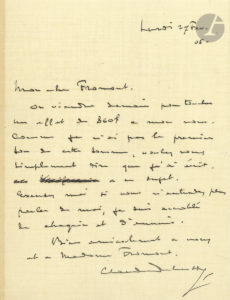 Lundi 27 Fév.
05.
Mon cher Fromont.
On viendra demain pour toucher
un effet de 860f a mon nom.
Comme je n'ai pas le premier
sou de cette somme, voulez vous
simplement dire que j'ai écrit
a ce sujet.
Excusez moi si vous n'entendez plus
parler de moi, je suis accablé
de chagrin et d'ennuis.
Bien amicalement a vous
et a Madame Fromont.
Claude Debussy